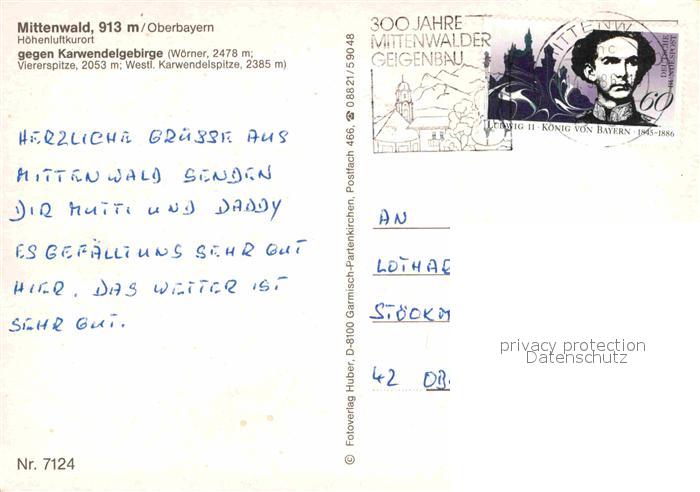 Mittenwald, 913 m/Oberbayern
Höhenluftkurort
gegen Karwendelgebirge (Wörner, 2478 m;
Viererspitze, 2053 m; Westl. Karwendelspitze, 2385 m)
HERZLICHE GRÜSSE AUS
MITTENWALD SENDEN
DIR MUTTI UND DADDY
ES GEFÄLLT UNS SEHR GUT
HIER. DAS WETTER IST
SEHR GUT.
Nr. 7124
© Fotoverlag Huber, D-8100 Garmisch-Partenkirchen, Postfach 466, ☎ 08821/59048
300 JAHRE
MITTENWALDER
GEIGENBAU
MITTENW
DEUTSCHE
BUNDESPOST
60
LUDWIG II · KÖNIG VON BAYERN · 1845-1886
AN
LOTHAR
STÖCKM
42 OB
privacy protection
Datenschutz